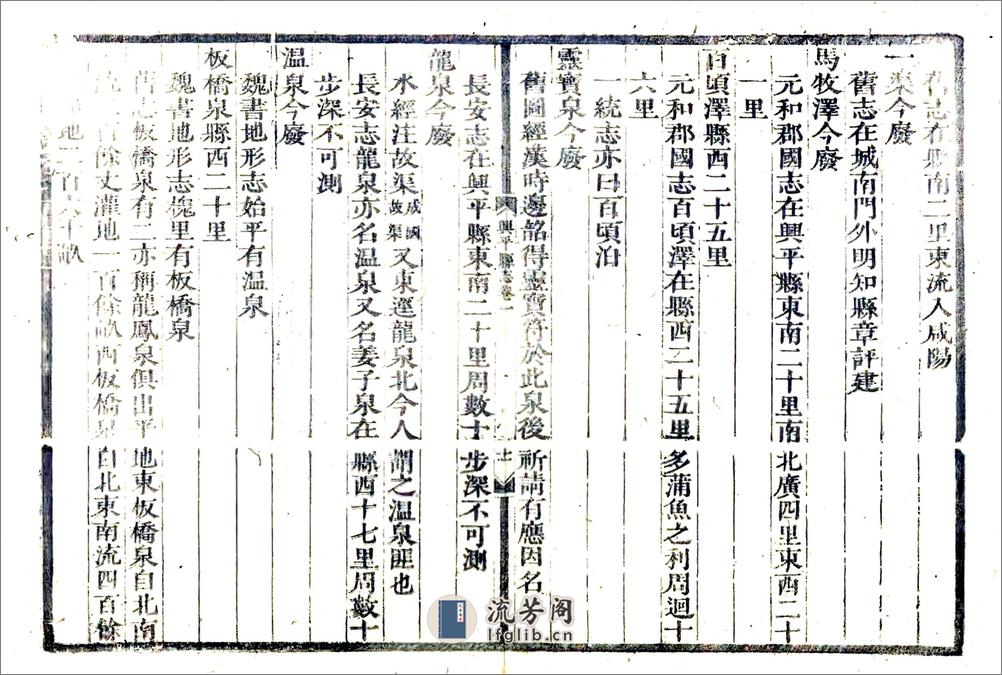 舊志在縣南二里東流入咸陽
一渠今廢
舊志在城南門外明知縣章評建
馬牧澤今廢
元和郡國志在興平縣東南二十里南北廣四里東西二十
一里
百頃澤縣西二十五里
元和郡國志百頃澤在縣西二十五里多蒲魚之利周迴十
六里
一統志亦曰百頃泊
靈寶泉今廢
舊圖經漢時邊韶得靈寶符於此泉後祈請有應因名
興平縣志卷一
長安志在興平縣東南二十里周數十步深不可測
龍泉今廢
水經注故渠成國故渠又東逕龍泉北今人謂之溫泉匪也
長安志龍泉亦名溫泉又名姜子泉在縣西十七里周數十
步深不可測
溫泉今廢
魏書地形志始平有溫泉
板橋泉縣西二十里
魏書地形志槐里有板橋泉
舊志板橋泉有二亦稱龍鳳泉俱出平地東板橋泉自北南
流百餘丈灌地一百餘畝西板橋泉自北東南流四百餘
地百六十畝
流芳阁
lfglib.cn